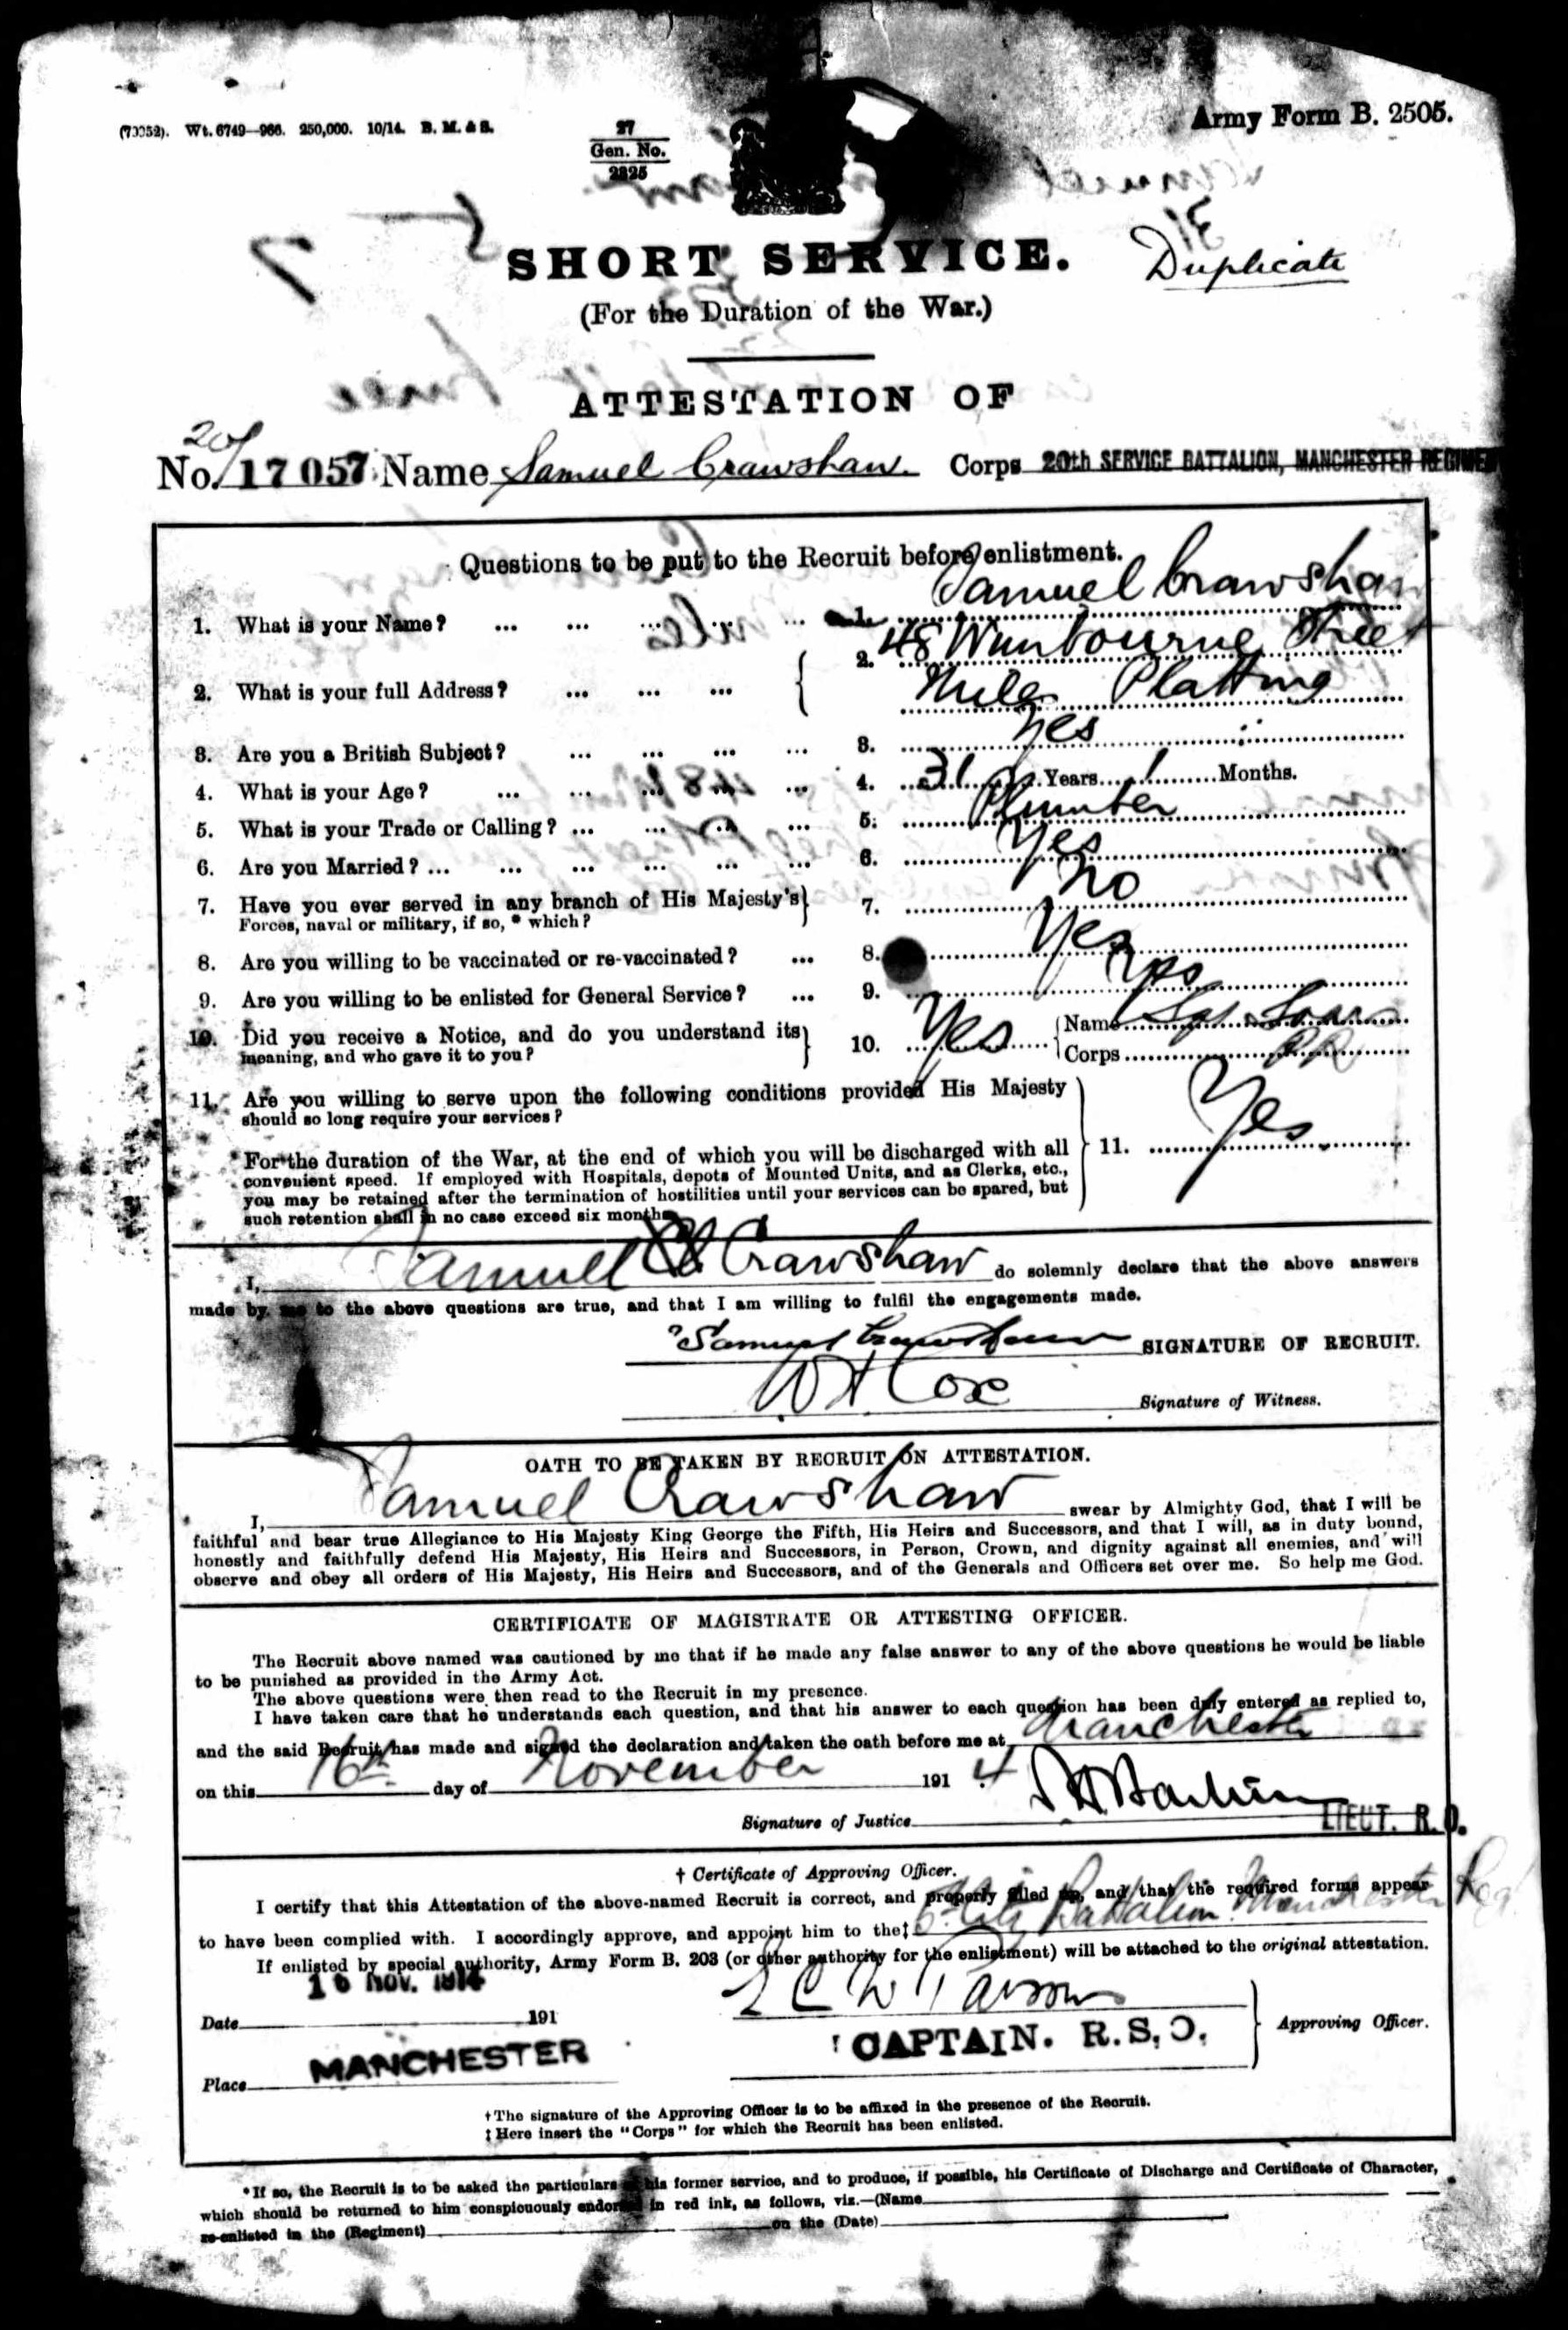 (73352). Wt. 6749—966. 250,000. 10/14. B. M. & S.
27
Gen. No.
2225
Army Form B. 2505.
Duplicate
SHORT SERVICE.
(For the Duration of the War.)
ATTESTATION OF
No. 20/17057 Name Samuel Crawshaw. Corps 20th SERVICE BATTALION, MANCHESTER REGIMEN
Questions to be put to the Recruit before enlistment.
1. What is your Name? ... ... ... ... 1. Samuel Crawshaw
2. What is your full Address? ... ... ... 2. 48 Wimbourne Street
Miles Platting
3. Are you a British Subject? ... ... ... ... 3. Yes
4. What is your Age? ... ... ... ... ... 4. 31 Years 1 Months.
5. What is your Trade or Calling? ... ... ... ... 5. Plumber
6. Are you Married? ... ... ... ... ... ... 6. Yes
7. Have you ever served in any branch of His Majesty's 7. No
Forces, naval or military, if so, * which?
8. Are you willing to be vaccinated or re-vaccinated? ... 8. Yes
9. Are you willing to be enlisted for General Service? ... 9. Yes
10. Did you receive a Notice, and do you understand its 10. Yes Name Sgt
meaning, and who gave it to you? Corps
11. Are you willing to serve upon the following conditions provided His Majesty
should so long require your services?
For the duration of the War, at the end of which you will be discharged with all 11. Yes
convenient speed. If employed with Hospitals, depots of Mounted Units, and as Clerks, etc.,
you may be retained after the termination of hostilities until your services can be spared, but
such retention shall in no case exceed six months
I, Samuel Crawshaw do solemnly declare that the above answers
made by me to the above questions are true, and that I am willing to fulfil the engagements made.
Samuel Crawshaw SIGNATURE OF RECRUIT.
W H Cox Signature of Witness.
OATH TO BE TAKEN BY RECRUIT ON ATTESTATION.
I, Samuel Crawshaw swear by Almighty God, that I will be
faithful and bear true Allegiance to His Majesty King George the Fifth, His Heirs and Successors, and that I will, as in duty bound,
honestly and faithfully defend His Majesty, His Heirs and Successors, in Person, Crown, and dignity against all enemies, and will
observe and obey all orders of His Majesty, His Heirs and Successors, and of the Generals and Officers set over me. So help me God.
CERTIFICATE OF MAGISTRATE OR ATTESTING OFFICER.
The Recruit above named was cautioned by me that if he made any false answer to any of the above questions he would be liable
to be punished as provided in the Army Act.
The above questions were then read to the Recruit in my presence.
I have taken care that he understands each question, and that his answer to each question has been duly entered as replied to,
and the said Recruit has made and signed the declaration and taken the oath before me at Manchester
on this 16th day of November 1914
Signature of Justice LIEUT. R.O.
† Certificate of Approving Officer.
I certify that this Attestation of the above-named Recruit is correct, and properly filled up, and that the required forms appear
to have been complied with. I accordingly approve, and appoint him to the‡ City Battalion Manchester Reg
If enlisted by special authority, Army Form B. 203 (or other authority for the enlistment) will be attached to the original attestation.
Date 16 NOV. 1914 191
Approving Officer.
CAPTAIN. R.S.O.
Place MANCHESTER
†The signature of the Approving Officer is to be affixed in the presence of the Recruit.
‡Here insert the "Corps" for which the Recruit has been enlisted.
*If so, the Recruit is to be asked the particulars his former service, and to produce, if possible, his Certificate of Discharge and Certificate of Character,
which should be returned to him conspicuously endorsed in red ink, as follows, viz.—(Name
re-enlisted in the (Regiment) on the (Date)